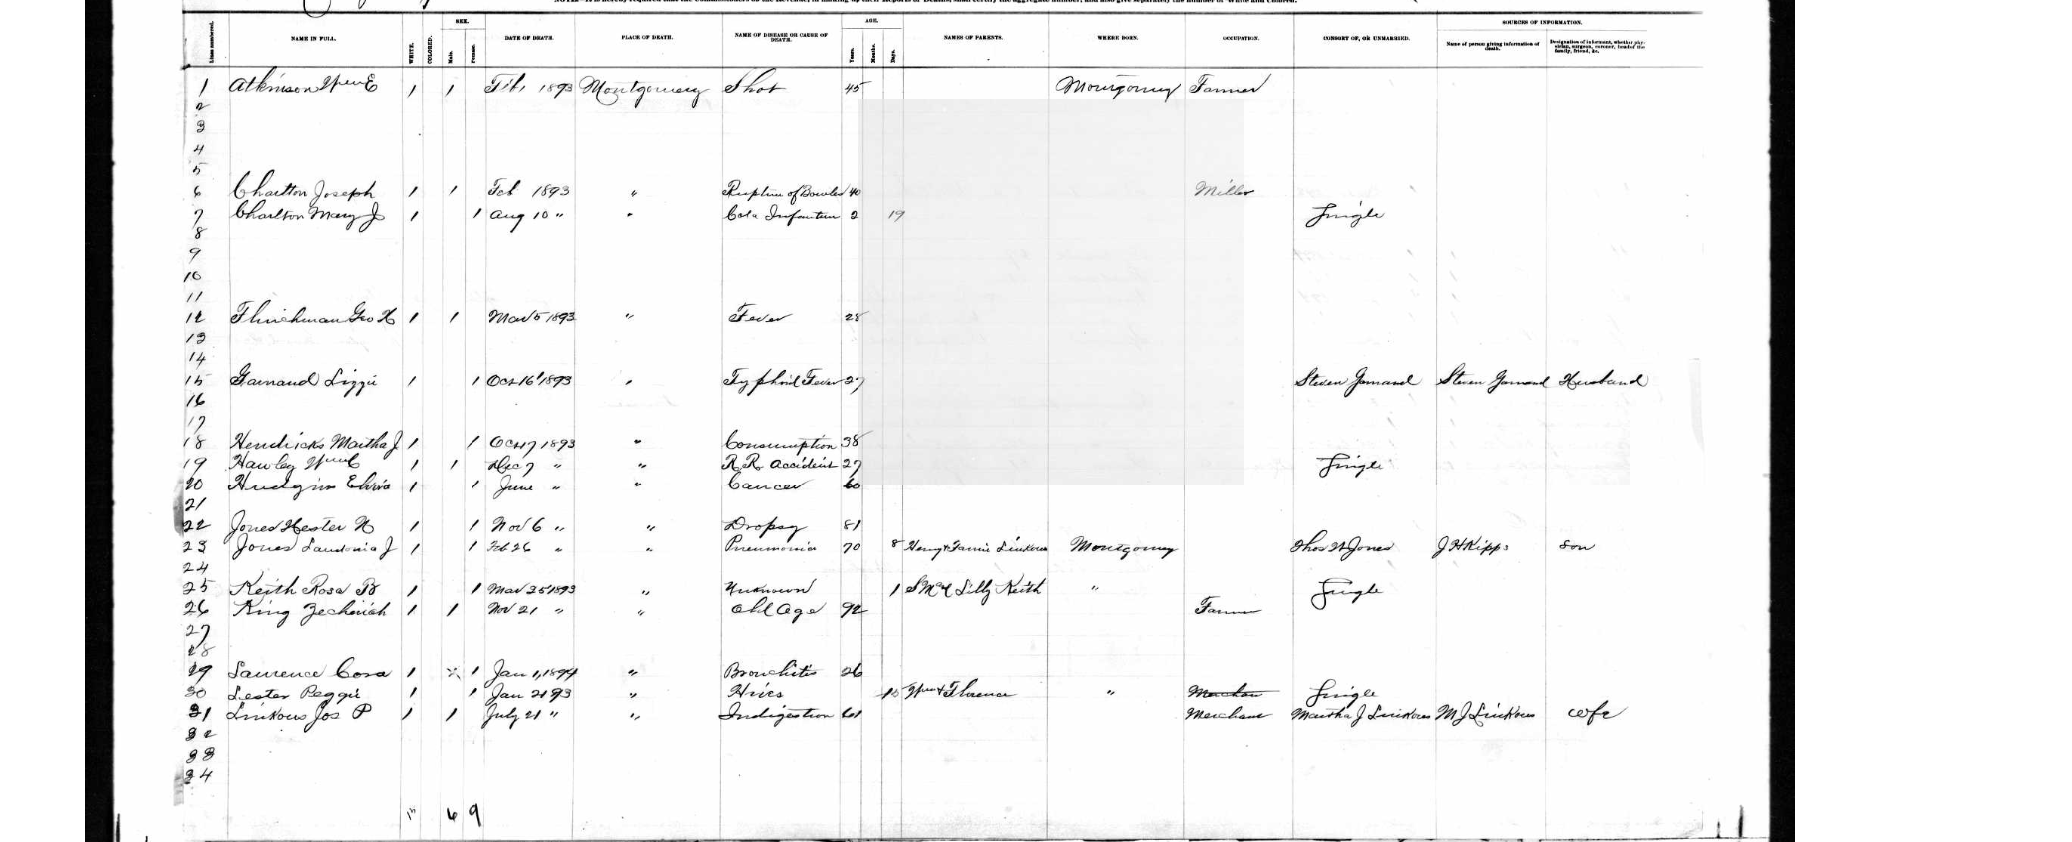 SEX. AGE. SOURCES OF INFORMATION.
Lines numbered. NAME IN FULL. WHITE. COLORED. Male. Female. DATE OF DEATH. PLACE OF DEATH. NAME OF DISEASE OR CAUSE OF DEATH. Years. Months. Days. NAMES OF PARENTS. WHERE BORN. OCCUPATION. CONSORT OF, OR UNMARRIED. Name of person giving information of death. Designation of informant, whether physician, surgeon, coroner, head of the family, friend, &c.
1 Atkinson Wm E 1 1 Feb 1893 Montgomery Shot 45 Montgomery Farmer
2
3
4
5
6 Charlton Joseph 1 1 Feb 1893 " Rupture of Bowles 40 Miller
7 Charlton Mary J 1 1 Aug 10 " " Cola Infantum 2 19 Single
8
9
10
11
12 Geo H 1 1 Mar 5 1893 " Fever 28
13
14
15 Garnand Lizzie 1 1 Oct 16 1893 " Typhoid Fever 27 Steven Garnand Steven Garnand Husband
16
17
18 Hendricks Martha J 1 1 Oct 17 1893 " Consumption 38
19 Hawley Wm C 1 1 Dec 7 " " R.R. Accident 27 Single
20 Hudgins Elvira 1 1 June " " Cancer 60
21
22 Jones Hester N 1 1 Nov 6 " " Dropsy 81
23 Jones J 1 1 Feb 26 " " Pneumonia 70 8 Henry & Fannie Linkous Montgomery Thos W Jones J H Kipps Son
24
25 Keith Rosa B 1 1 Mar 25 1893 " Unknown 1 S M & Lilly Keith " Single
26 King Zechariah 1 1 Nov 21 " " Old Age 92 Farmer
27
28
29 Laurence Cora 1 1 Jan 1, 1894 " Bronchitis 26
30 Lester Peggie 1 Jan 21 93 " Hives 15 Wm & Florence " Single
31 Linkous Jos P 1 1 July 21 " " Indigestion 61 Merchant Martha J Linkous M J Linkous Wife
32
33
34
6 9